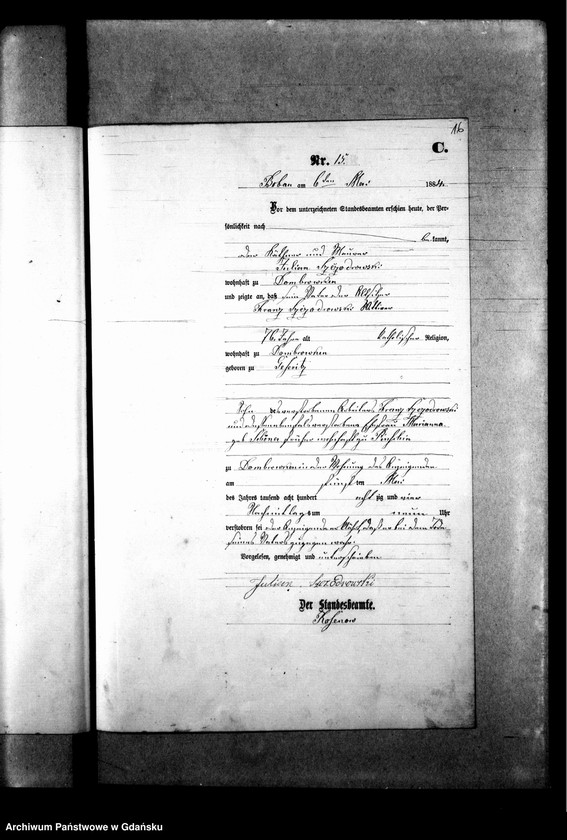 16
C.
Nr. 15.
Boban am 6ten Mai 1884.
Vor dem unterzeichneten Standesbeamten erschien heute, der Per-
sönlichkeit nach
bekannt,
der Käthner und Maurer
Julian
wohnhaft zu Dombrowken
und zeigte an, daß sein Vater der Altsitzer
Franz Wittwer
76 Jahre alt katholischer Religion,
wohnhaft zu Dombrowken
geboren zu
Sohn des verstorbenen Arbeiters Franz
und dessen ebenfalls verstorbene Ehefrau Marianna
geb. früher wohnhaft zu
zu Dombrowken in der Wohnung des Anzeigenden
am fünften Mai
des Jahres tausend acht hundert acht zig und vier
Nachmittags um neun Uhr
verstorben sei der Anzeigende daß er bei dem Tode
seines Vaters zugegen war.
Vorgelesen, genehmigt und unterschrieben
Julian
Der Standesbeamte.
Archiwum Państwowe w Gdańsku